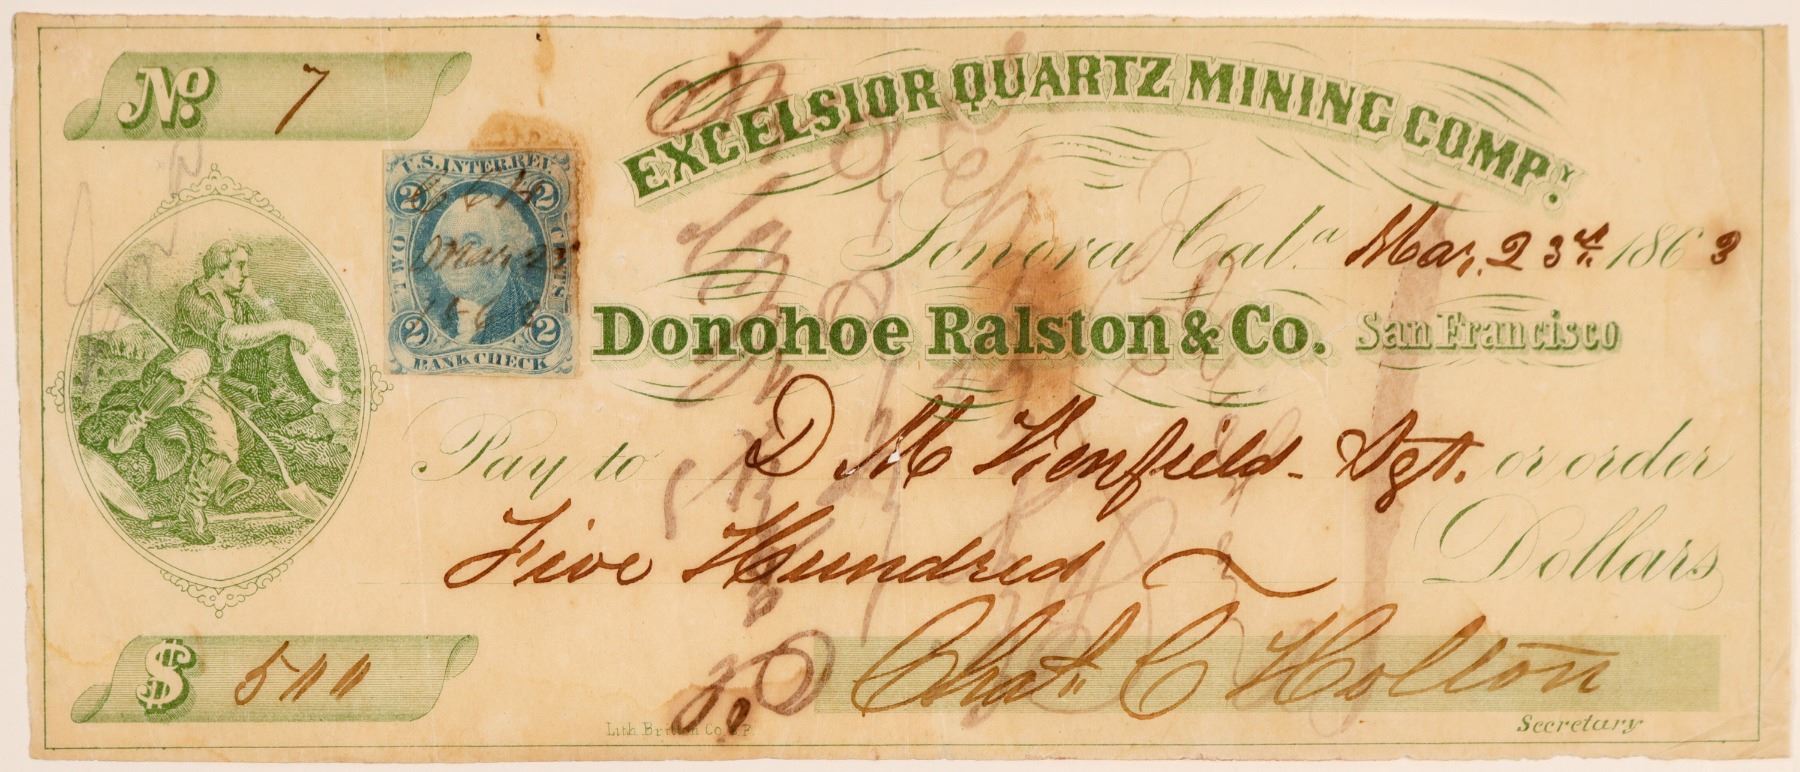 No. 7
EXCELSIOR QUARTZ MINING COMPY.
Sonora Cala. Mar. 23rd. 1863
U.S. INTER. REV.
2 2
C C H
Mar. 23
1863
TWO CENTS
2 2
BANK CHECK
Donohoe Ralston & Co. San Francisco
Pay to D M Kenfield - Sgt. or order
Five Hundred Dollars
$ 500
Chas. C Holton
Secretary
Lith. Britton Co. S.F.